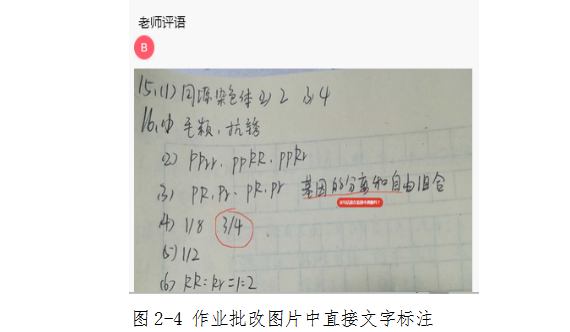 老师评语
B
15.(1)同源染色体 (2) 2 (3) 4
16.(1) 毛颖、抗锈
(2) PPrr、ppRR、ppRr
(3) PR、Pr、pR、pr 基因的分离和自由组合
(4) 1/8 3/4
(5) 1/2
(6) RR:Rr=1:2
图2-4 作业批改图片中直接文字标注